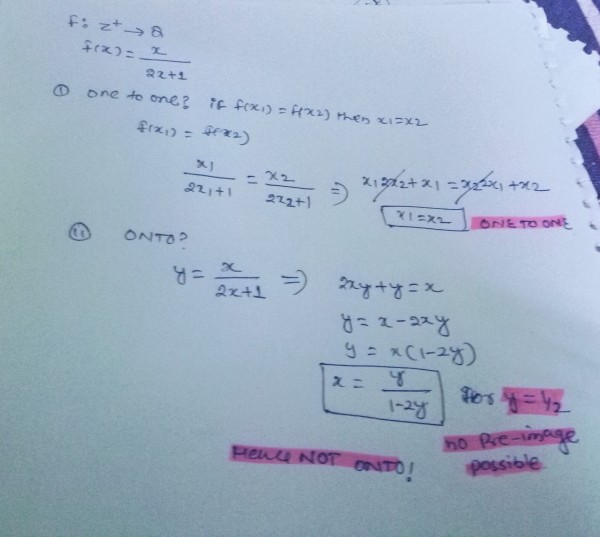 f: z⁺ → Q
f(x) = x/(2x+1)
① one to one? if f(x1) = f(x2) then x1=x2
f(x1) = f(x2)
x1/(2x1+1) = x2/(2x2+1) ⇒ x1 2x2 + x1 = x2 2x1 + x2
x1 = x2 ONE TO ONE
② ONTO?
y = x/(2x+1) ⇒ 2xy + y = x
y = x - 2xy
y = x(1-2y)
x = y/(1-2y) for y = 1/2
no Pre-image
possible
Hence NOT ONTO!